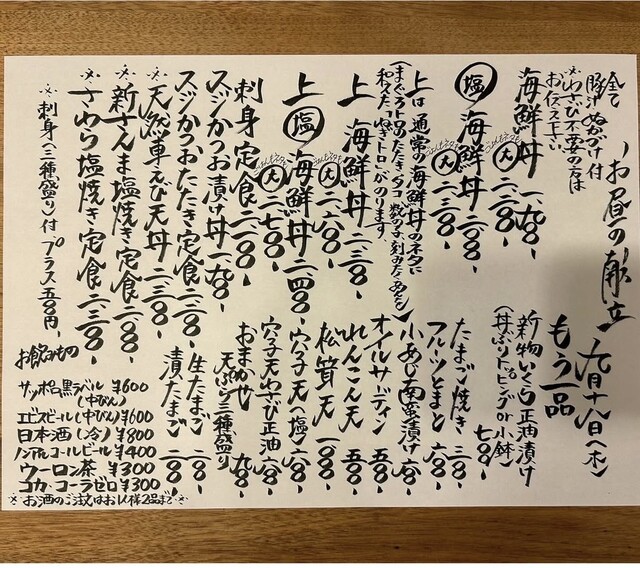 お昼の献立 九月十八日(木)
全て
豚汁ぬかづけ付
※わさび不要の方は
お伝え下さい
海鮮丼 一、九八〇-
(大) 二、二八〇-
(塩)海鮮丼 二、〇八〇-
ごはんもネタも(大) 二、三八〇-
上は通常の海鮮丼のネタに
(まぐろトロのたたき、タコ、数の子、刻みたくあんを
和えた「ねぎトロ」がのります。
上 海鮮丼 二、三八〇-
ごはんもネタも(大) 二、六八〇-
上(塩)海鮮丼 二、四八〇-
ごはんもネタも(大) 二、七八〇-
刺身定食 二、三八〇-
スジかつお漬け丼 一、九八〇-
スジかつおたたき定食 二、三八〇-
※天然車えび天丼 二、三八〇-
※新さんま塩焼き定食 二、二八〇-
※さわら塩焼き定食 二、三八〇-
※刺身(三種盛り)付、プラス五五〇円、
もう一品
新物いくら正油漬け
(丼ぶりトッピングor小鉢) 七八〇-
たまご焼き 三八〇-
フルーツとまと 六八〇-
小あじ南蛮漬け 六八〇-
オイルサーディン 五八〇-
れんこん天 五八〇-
松茸天 一、八〇〇-
穴子天(塩) 六八〇-
穴子天わさび正油 六八〇-
おまかせ
天ぷら三種盛り 九八〇-
生たまご 一八〇-
漬たまご 二八〇-
お飲みもの
サッポロ黒ラベル ¥600
(中びん)
エビスビール(中びん) ¥600
日本酒(冷) ¥800
ノンアルコールビール ¥400
ウーロン茶 ¥300
コカ・コーラゼロ ¥300
※お酒のご注文はお1人様2品まで※